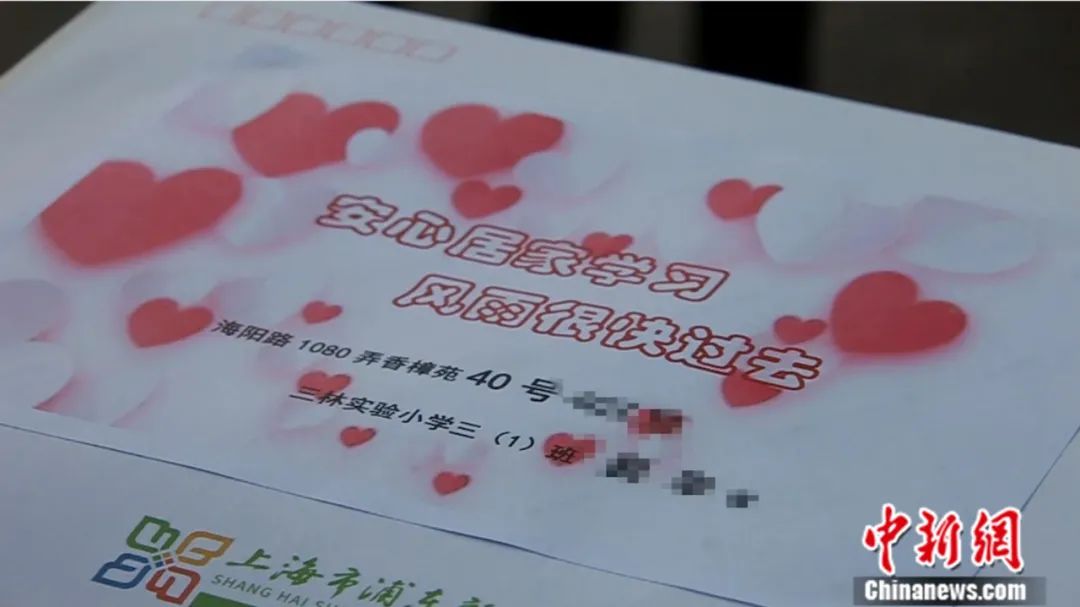 安心居家学习
风雨很快过去
海阳路 1080 弄香樟苑 40 号
三林实验小学三（1）班
上海市浦东新
SHANG HAI SH
中新網
Chinanews.com